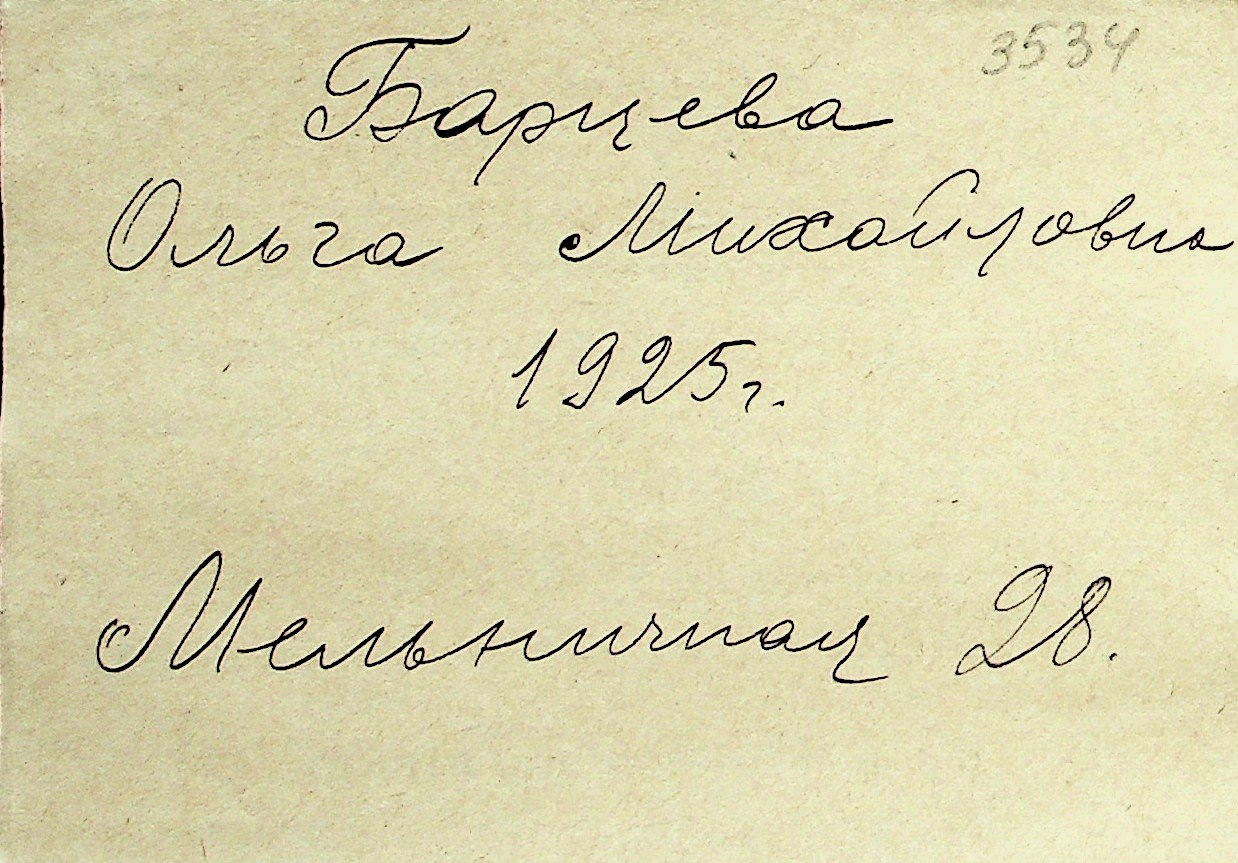 3534
Барцева
Ольга Михайловна
1925г.
Мельничная 28.